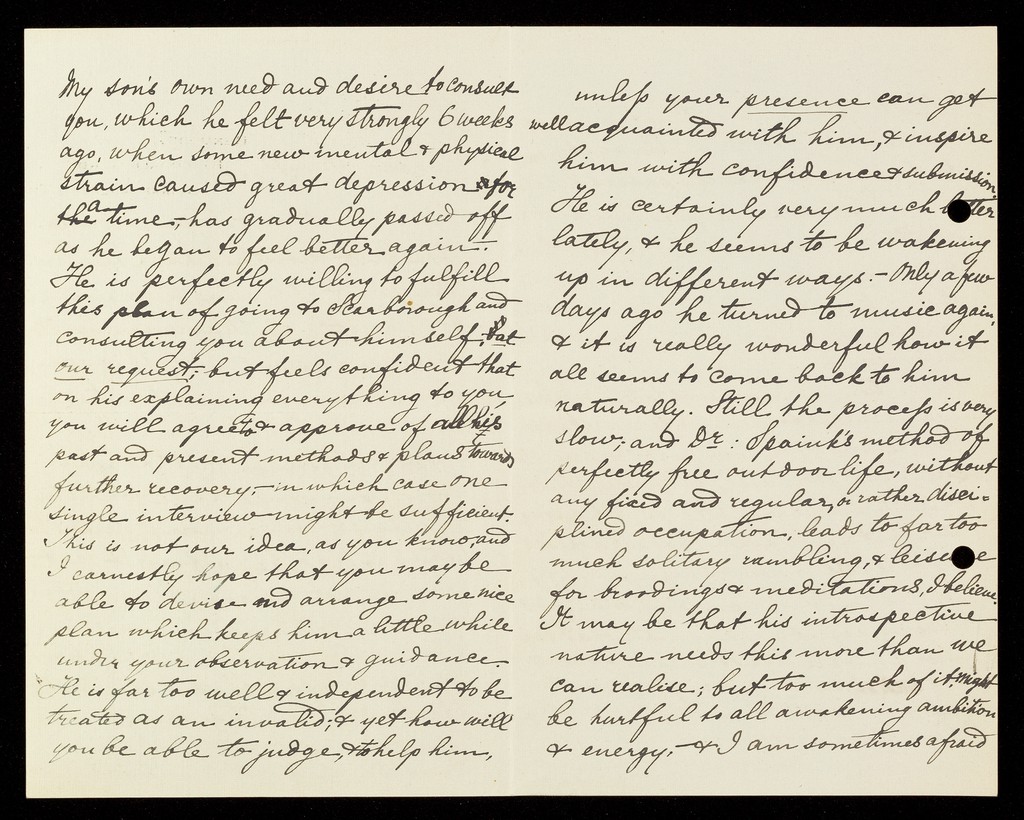 My son's own need and desire to consult
you, which he felt very strongly 6 weeks
ago, when some new mental & physical
strain caused great depression for
the a time,- has gradually passed off
as he began to feel better again.-
He is perfectly willing to fulfill
this plan of going to Scarborough and
consulting you about himself, at
our request; but feels confident that
on his explaining everything to you
you will agree to & approve of all his
past and present methods & plans towards
further recovery,- in which case one
single interview might be sufficient.
This is not our idea, as you know, and
I earnestly hope that you may be
able to devise and arrange some nice
plan which keeps him a little while
under your observation & guidance.
He is far too well & independent to be
treated as an invalid; & yet how will
you be able to judge, & to help him,
unless your presence can get
well acquainted with him, & inspire
him with confidence & submission.
He is certainly very much better
lately, & he seems to be wakening
up in different ways.- Only a few
days ago he turned to music again,
& it is really wonderful how it
all seems to come back to him
naturally. Still the process is very
slow; and Dr: Spaink's method of
perfectly free outdoor life, without
any fixed and regular, or rather disci=
plined occupation, leads to far too
much solitary rambling, & leisure
for broodings & meditations, I believe.
It may be that his introspective
nature needs this more than we
can realise; but too much of it might
be hurtful to all awakening ambition
& energy;- & I am sometimes afraid